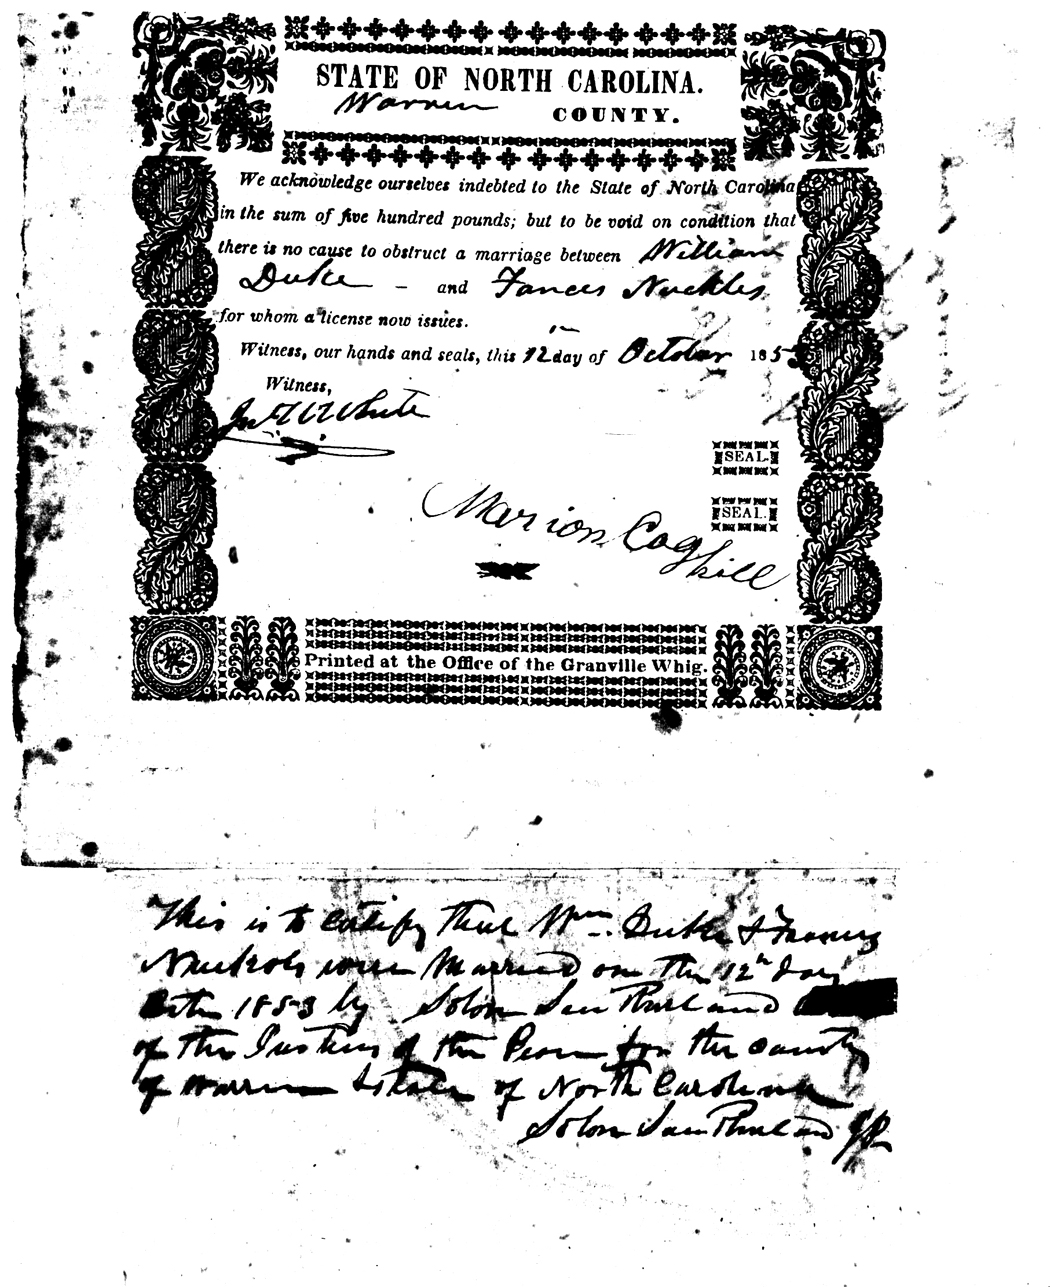 STATE OF NORTH CAROLINA.
Warren COUNTY.
We acknowledge ourselves indebted to the State of North Carolina
in the sum of five hundred pounds; but to be void on condition that
there is no cause to obstruct a marriage between William
Duke - and Fances Nuckles
for whom a license now issues.
Witness, our hands and seals, this 12 day of October 1853
Witness,
White
SEAL.
SEAL.
Marion Coghill
Printed at the Office of the Granville Whig.
This is to certify that Wm Duke &
Nuckols were Married on the 12th day
1853 by Solon
of the Justices of the Peace for the County
of Warren & State of North Carolina
Solon JP